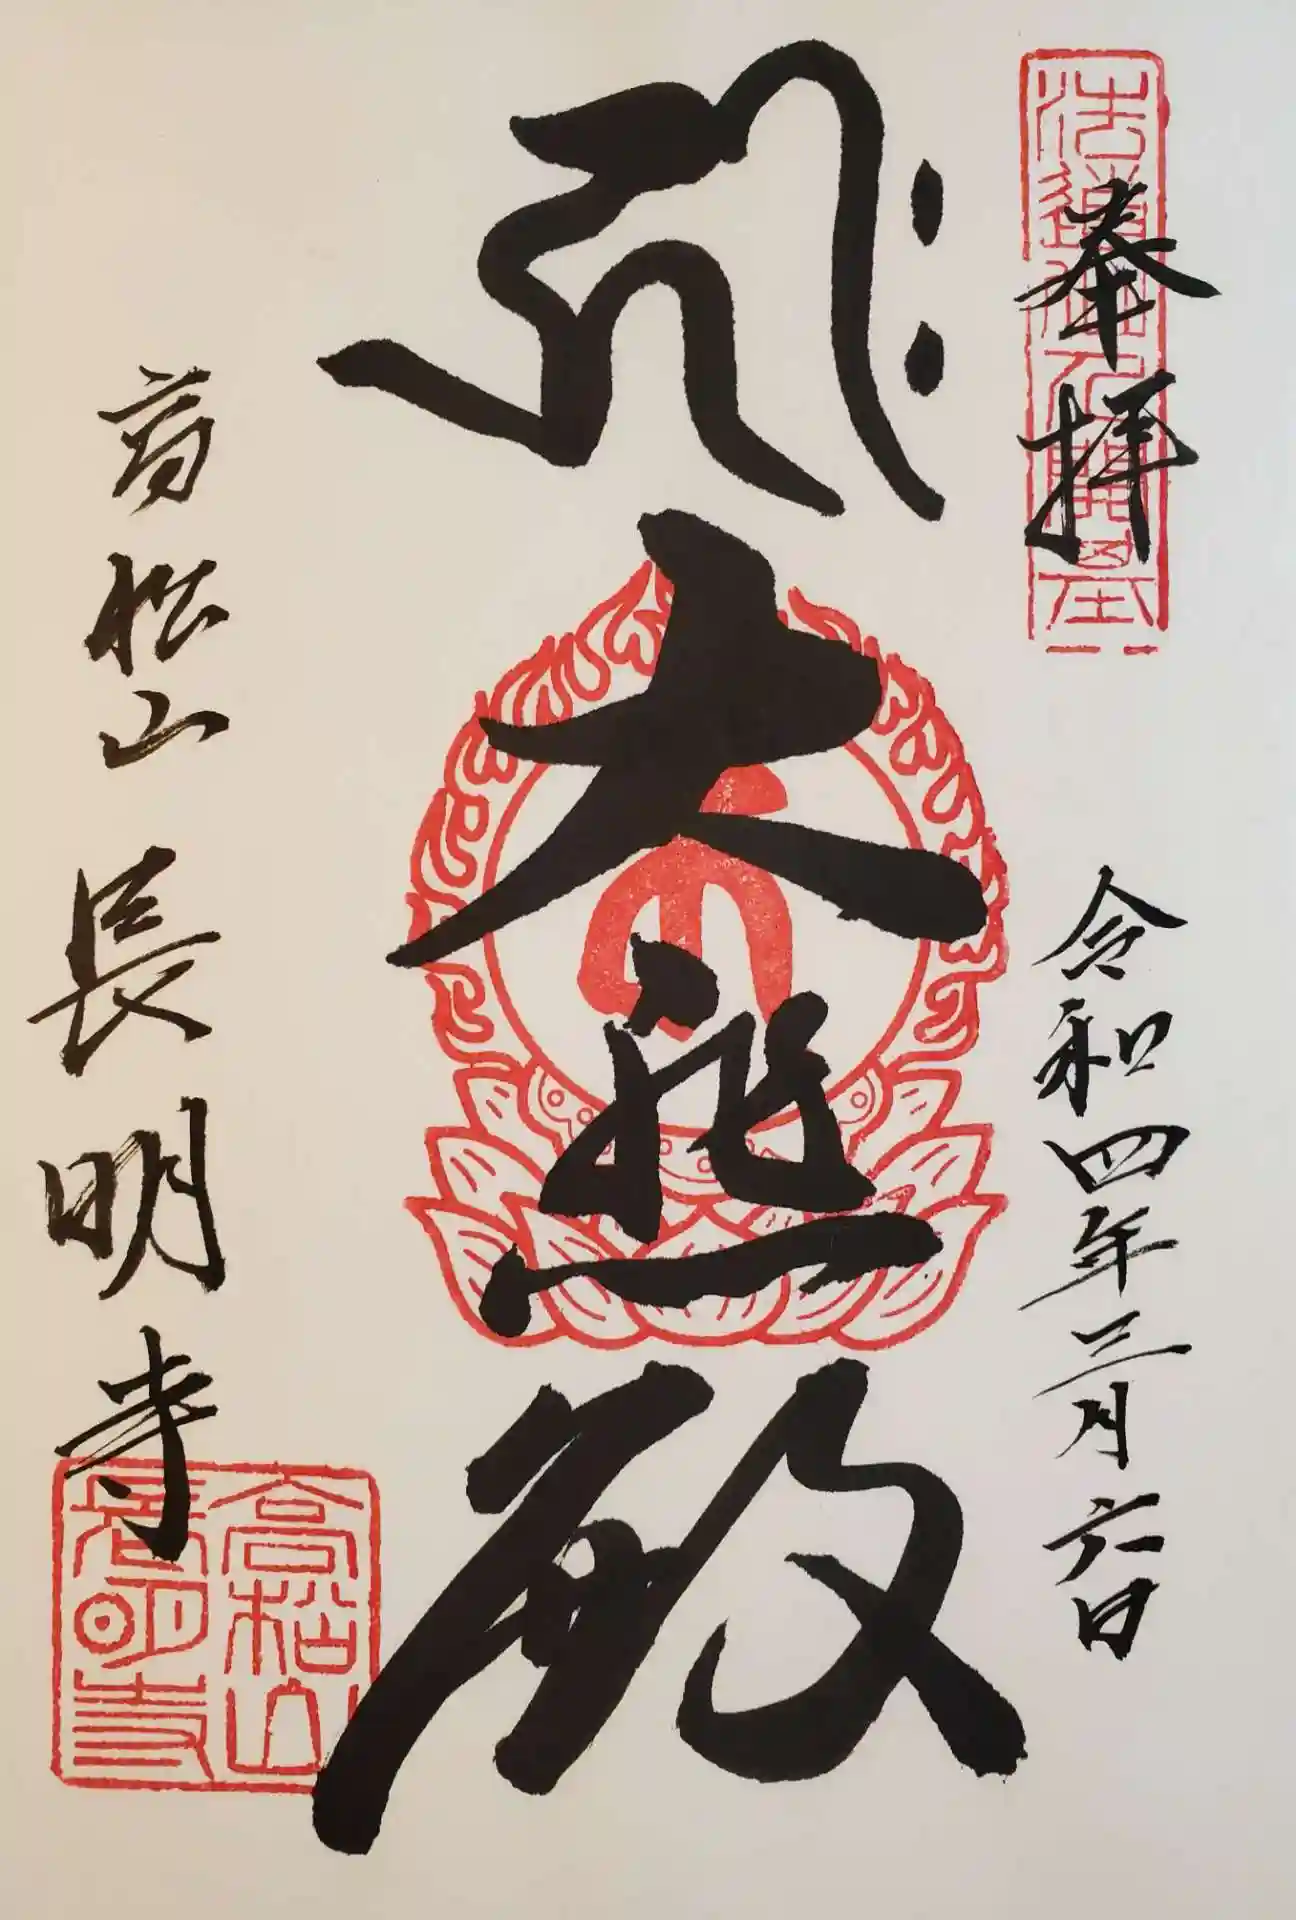 法道仙人開基
奉拝
令和四年三月六日
𑖮𑖿𑖨𑖱𑖾
大悲殿
高松山
長明寺
高松山
長明寺